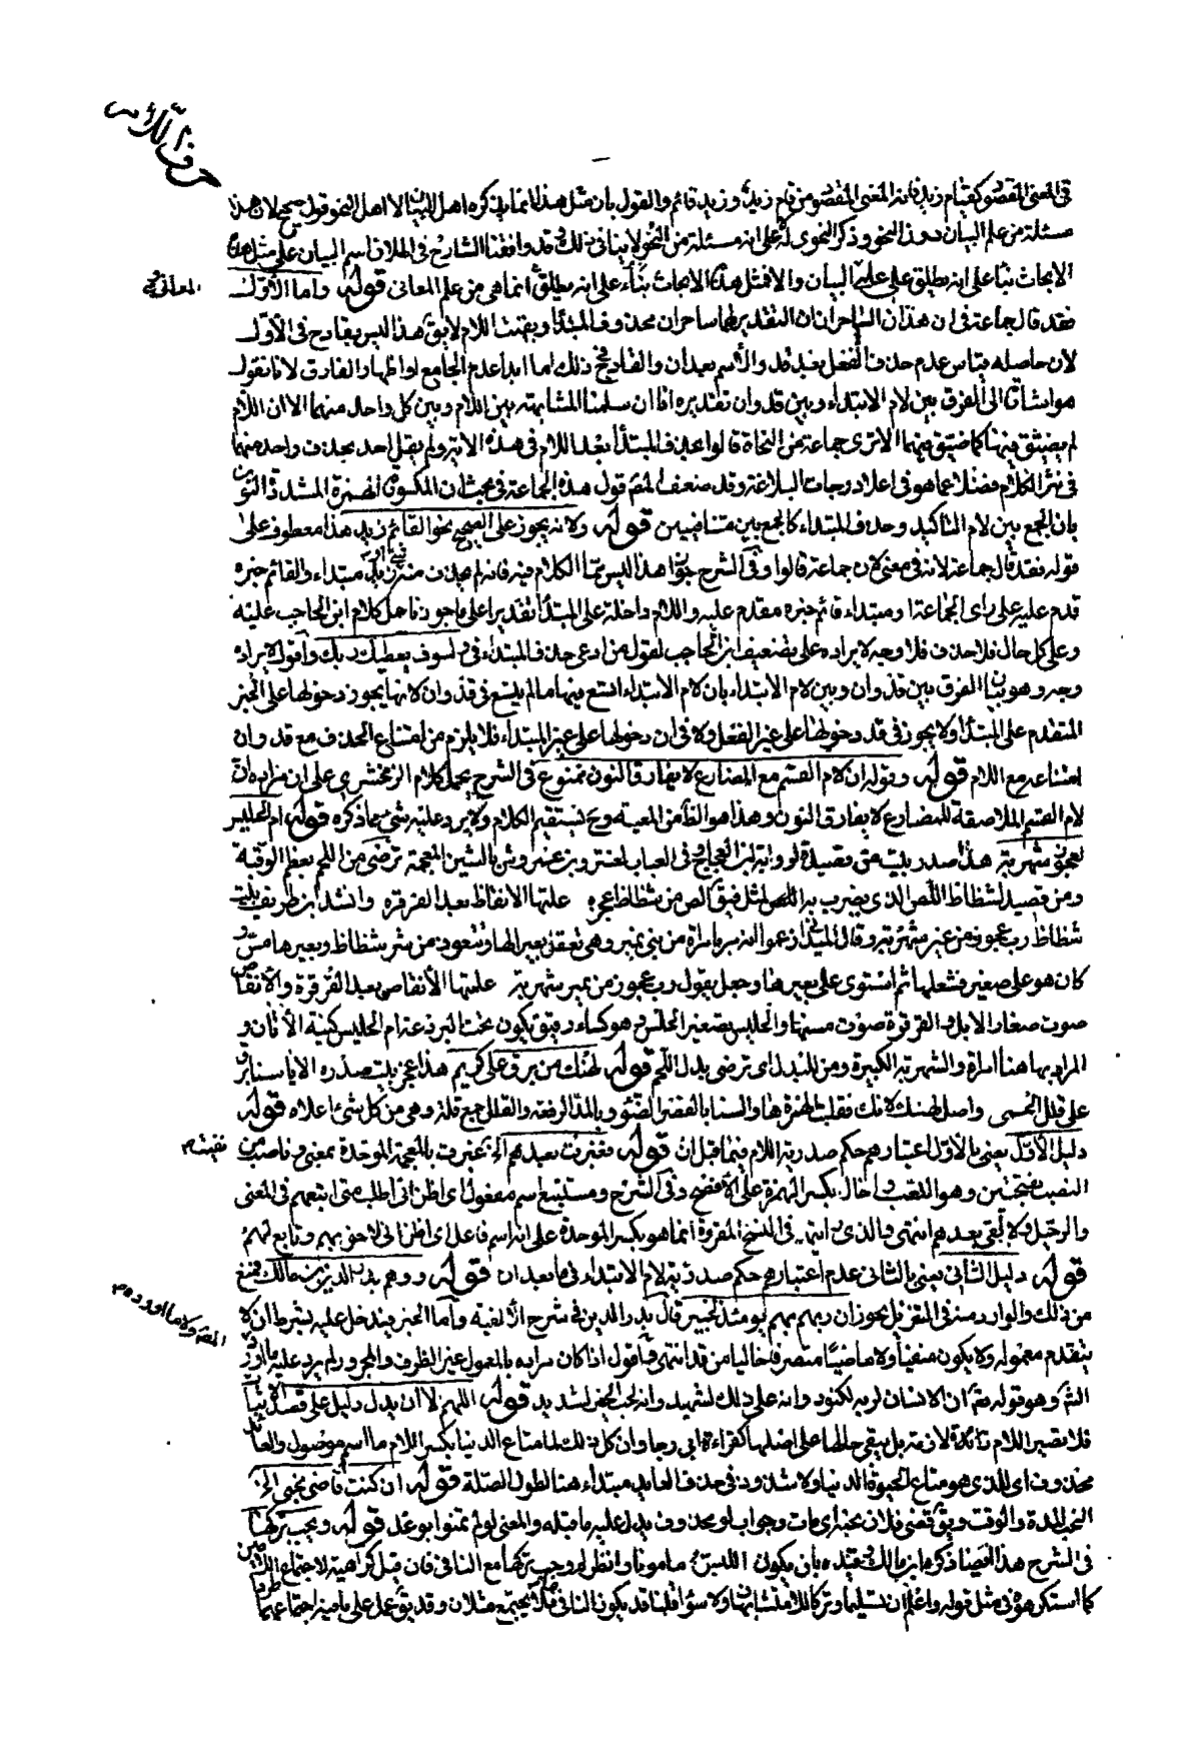 حرف اللام
فى المعنى المقصود كقيام زيد فانه المعنى المقصود من قام زيد وزيد قائم والقول بان مثل هذا انما يذكره اهل البيان لا اهل النحو قول صحيح لان هذا
مسئلة من علم البيان دون النحو وذكر النحوى له على انه مسئلة من النحو لا ينافى ذلك وقد وافقنا الشارح فى اطلاق اسم البيان على مثل هذا
الابحاث بناء على انه يطلق على علم البيان والا فمثل هذا الابحاث بناء على انه يطلق انما هى من علم المعانى قوله واما الاول
المعانى
فقد قال جماعة فى ان هذان لساحران ان التقدير لهما ساحران فحذف المبتدأ وبقيت اللام لا يق هذا ليس بقادح فى الاول
لان حاصله قياس عدم حذف الفعل بعد قد والاسم بعد ان والقادح فى ذلك اما ابداء عدم الجامع او اظهار الفارق لانا نقول
هو اشارة الى الفرق بين لام الابتداء وبين قد وان تقديره انا ان سلمنا المشابهة بين اللام وبين كل واحد منهما الا ان اللام
لم يضيق فيها كما ضيق فيهما الا ترى جماعة من النحاة قالوا بحذف المبتدأ بعد اللام فى هذه الاية ولم يقل احد بحذف واحد منهما
فى نثر الكلام فضلا عما هو فى اعلا درجات البلاغة وقد ضعف المص قول هذه الجماعة فى مبحث ان المكسورة الهمزة المشددة النون
بان الجمع بين لام التاكيد وحذف المبتداء كالجمع بين متنافيين قوله ولانه يجوز على الصحيح نحو لقائم زيد هذا معطوف على
قوله فقد قال جماعة لانه فى معنى لان جماعة قالوا وفى الشرح هذا ليس مما الكلام فيه فانه لم يحذف منه شئ اذ زيد مبتداء والقائم خبره
قدم عليه على راى الجماعة او مبتداء قائم خبره مقدم عليه واللام داخلة على المبتدأ تقديرا على ما جوزناه كلام ابن الحاجب عليه
وعلى كل حال فلا حذف فلا وجه لايراده على تضعيف ابن الحاجب لقول من ادعى حذف المبتداء فى ولسوف يعطيك ربك واقول لايراده
وجه وهو بيان الفرق بين قد وان وبين لام الابتداء بان لام الابتداء اتسع فيها ما لم يتسع فى قد وان لانها يجوز دخولها على الخبر
المتقدم على المبتدأ ولا يجوز فى قد دخولها على غير الفعل ولا فى ان دخولها على غير المبتداء فلا يلزم من امتناع الحذف مع قد وان
امتناعه مع اللام قوله وقوله ان لام القسم مع المضارع لا يفارق النون ممنوع فى الشرح يحمل كلام الزمخشرى على ان مراده ان
لام القسم الملاصقة للمضارع لا يفارق النون وهذا هو الظ من المعية وح يستقيم الكلام ولا يرد عليه شئ مما ذكره قوله ام الحليس
لعجوز شهربه هذا صدر بيت من قصيدة لرؤبة بن العجاج وفى العباب لعنترة بن عروس بالشين المعجمة ترضى من اللحم بعظم الرقبة
ومن قصيد لشظاظ اللص الذى يضرب به المثل فيق الص من شظاظ علمتها الانقاض بعد القرقره وانشد ابن طريف بيت
شظاظ رب عجوز من نمير شهربه وقال الميدانى زعموا انه مر بامراة من بنى نمير وهى تعقل بعيرا لها وتتعوذ من شر شظاظ وبعيرها مسن
كان هو على صغير فشغلها ثم استوى على بعيرها وجعل يقول رب عجوز من نمير شهربه علمتها الانقاض بعد القرقرة والانقاض
صوت صغار الابل والقرقرة صوت مسنها والحليس تصغير الحلس وهو كساء رقيق يكون تحت البرذعة ام الحليس كنية الاتان و
المراد بها هنا امراة والشهربة الكبيرة ومن للبدل اى ترضى بدل اللحم قوله لهنك من برق على كريم هذا عجز بيت صدره الا يا سنا برق
على قلل الحمى واصل لهنك لانك فقلبت الهمزة هاء والسنا بالقصر الضوء وبالمد الرفعة والقلل جمع قلة وهى من كل شئ اعلاه قوله
دليل الاول يعنى بالاول اعتبارهم حكم صدرية اللام فيما قبل ان قوله فغبرت بعدهم الخ غبرت بالمعجمة الموحدة بمعنى و ناصب من
النصب بفتحتين وهو التعب واخال بكسر الهمزة على الافصح وفى الشرح ومستتبع اسم مفعول اى اظن انى اطلب متى اتبعهم فى المعنى
والرحيل ولا ابقى بعدهم انتهى والذى رايته فى النسخ المقروة انما هو بكسر الموحدة على انه اسم فاعل اى اظن انى لاحق بهم وتابع لهم
قوله دليل الثانى يعنى بالثانى عدم اعتبارهم حكم صدرية لام الابتداء فى ما بعد ان قوله ووهم بدر الدين بن مالك فمنع
من ذلك والوارد منه فى التنزيل يجوز ان ربهم بهم يومئذ لخبير قال بدر الدين فى شرح الالفية واما الخبر فيدخل عليه بشرط ان لا
يتقدم معموله ولا يكون منفيا ولا ماضيا متصرفا خاليا من قد انتهى واقول اذا كان مراده بالمعمول غير الظرف والمجرور لم يرد عليه ما اورده
الش وهو قوله تع ان الانسان لربه لكنود وانه على ذلك لشهيد وانه لحب الخير لشديد قوله اللهم الا ان يدل دليل على قصد الاثبات
فلا تصير اللام زائدة لازمة بل يبقى حالها على اصلها كقراءة ابى رجا وان كل ذلك لما متاع الدنيا بكسر اللام ما اسم موصول والعائد
محذوف اى للذى هو متاع الحيوة الدنيا ولا شذوذ فى حذف العايد مبتداء هنا لطول الصلة قوله ان كنت قاضى نحبى الخ
النحب المدة والوقت ويق قضى فلان نحبه اى مات وجواب لو محذوف يدل عليه ما قبله والمعنى لو لم تمنوا بوعد قوله ويجب تركها
فى الشرح هذا ايضا ذكرها ابن مالك وقيده بان يكون اللبس مامونا وانظر لم وجب تركها مع النافى فان قيل كراهية لاجتماع اللامين
كما استكرهوه فى مثل قوله واعلم ان تسليما وتركا للا متشابهان ولا سواء قلنا قد يكون النافى فلا يجتمع مثلان وقد يق حمل على ما فيه اجتماعهما